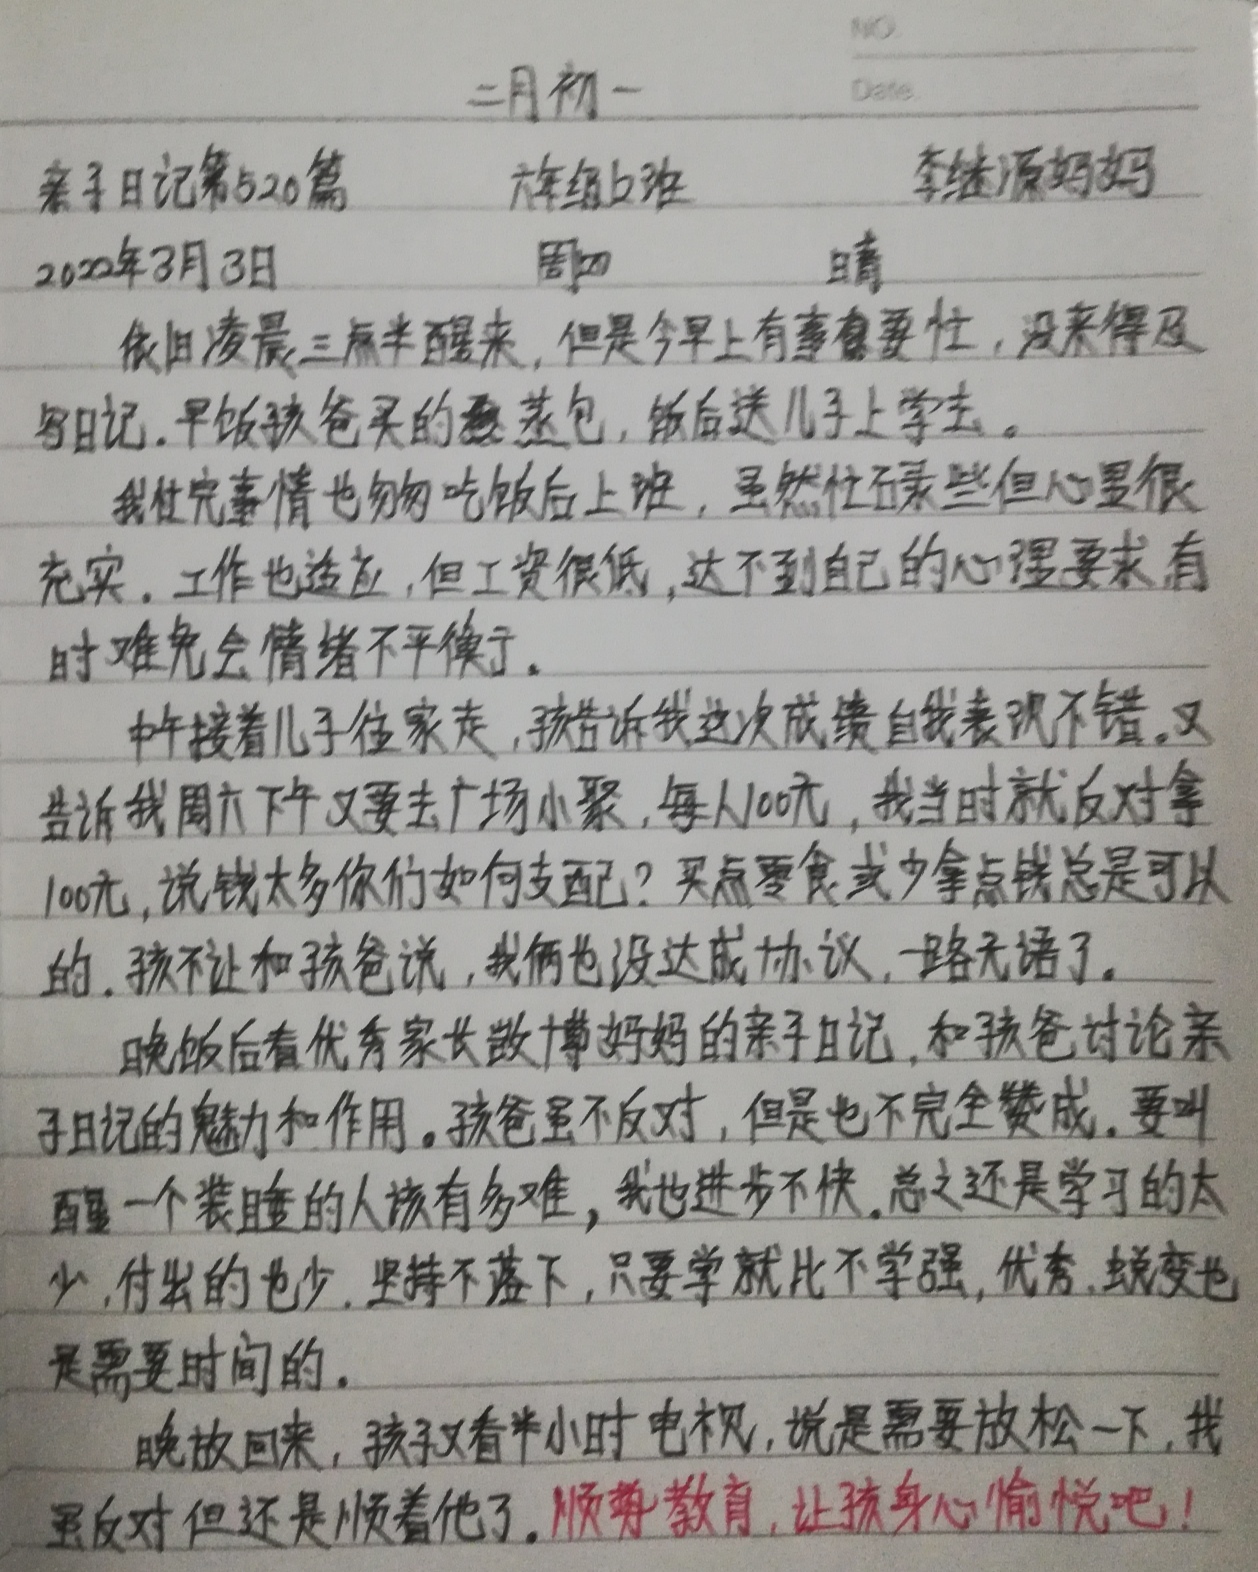 NO.
Date.
二月初一
亲子日记第520篇 六年级6班 李继源妈妈
2022年3月3日 周四 晴
依旧凌晨三点半醒来，但是今早上有事要忙，没来得及
写日记。早饭孩爸买的蒸包，饭后送儿子上学去。
我忙完事情也匆匆吃饭后上班，虽然忙碌些但心里很
充实。工作也适应，但工资很低，达不到自己的心理要求，有
时难免会情绪不平衡了。
中午接着儿子往家走，孩告诉我这次成绩自我表现不错。又
告诉我周六下午又要去广场小聚，每人100元，我当时就反对拿
100元，说钱太多你们如何支配？买点零食或少拿点钱总是可以
的。孩不让和孩爸说，我俩也没达成协议，一路无语了。
晚饭后看优秀家长敬博妈妈的亲子日记，和孩爸讨论亲
子日记的魅力和作用。孩爸虽不反对，但是也不完全赞成。要叫
醒一个装睡的人该有多难，我也进步不快。总之还是学习的太
少，付出的也少。坚持不落下，只要学就比不学强，优秀、蜕变也
是需要时间的。
晚放回来，孩子又看半小时电视，说是需要放松一下，我
虽反对但还是顺着他了。顺势教育，让孩身心愉悦吧！